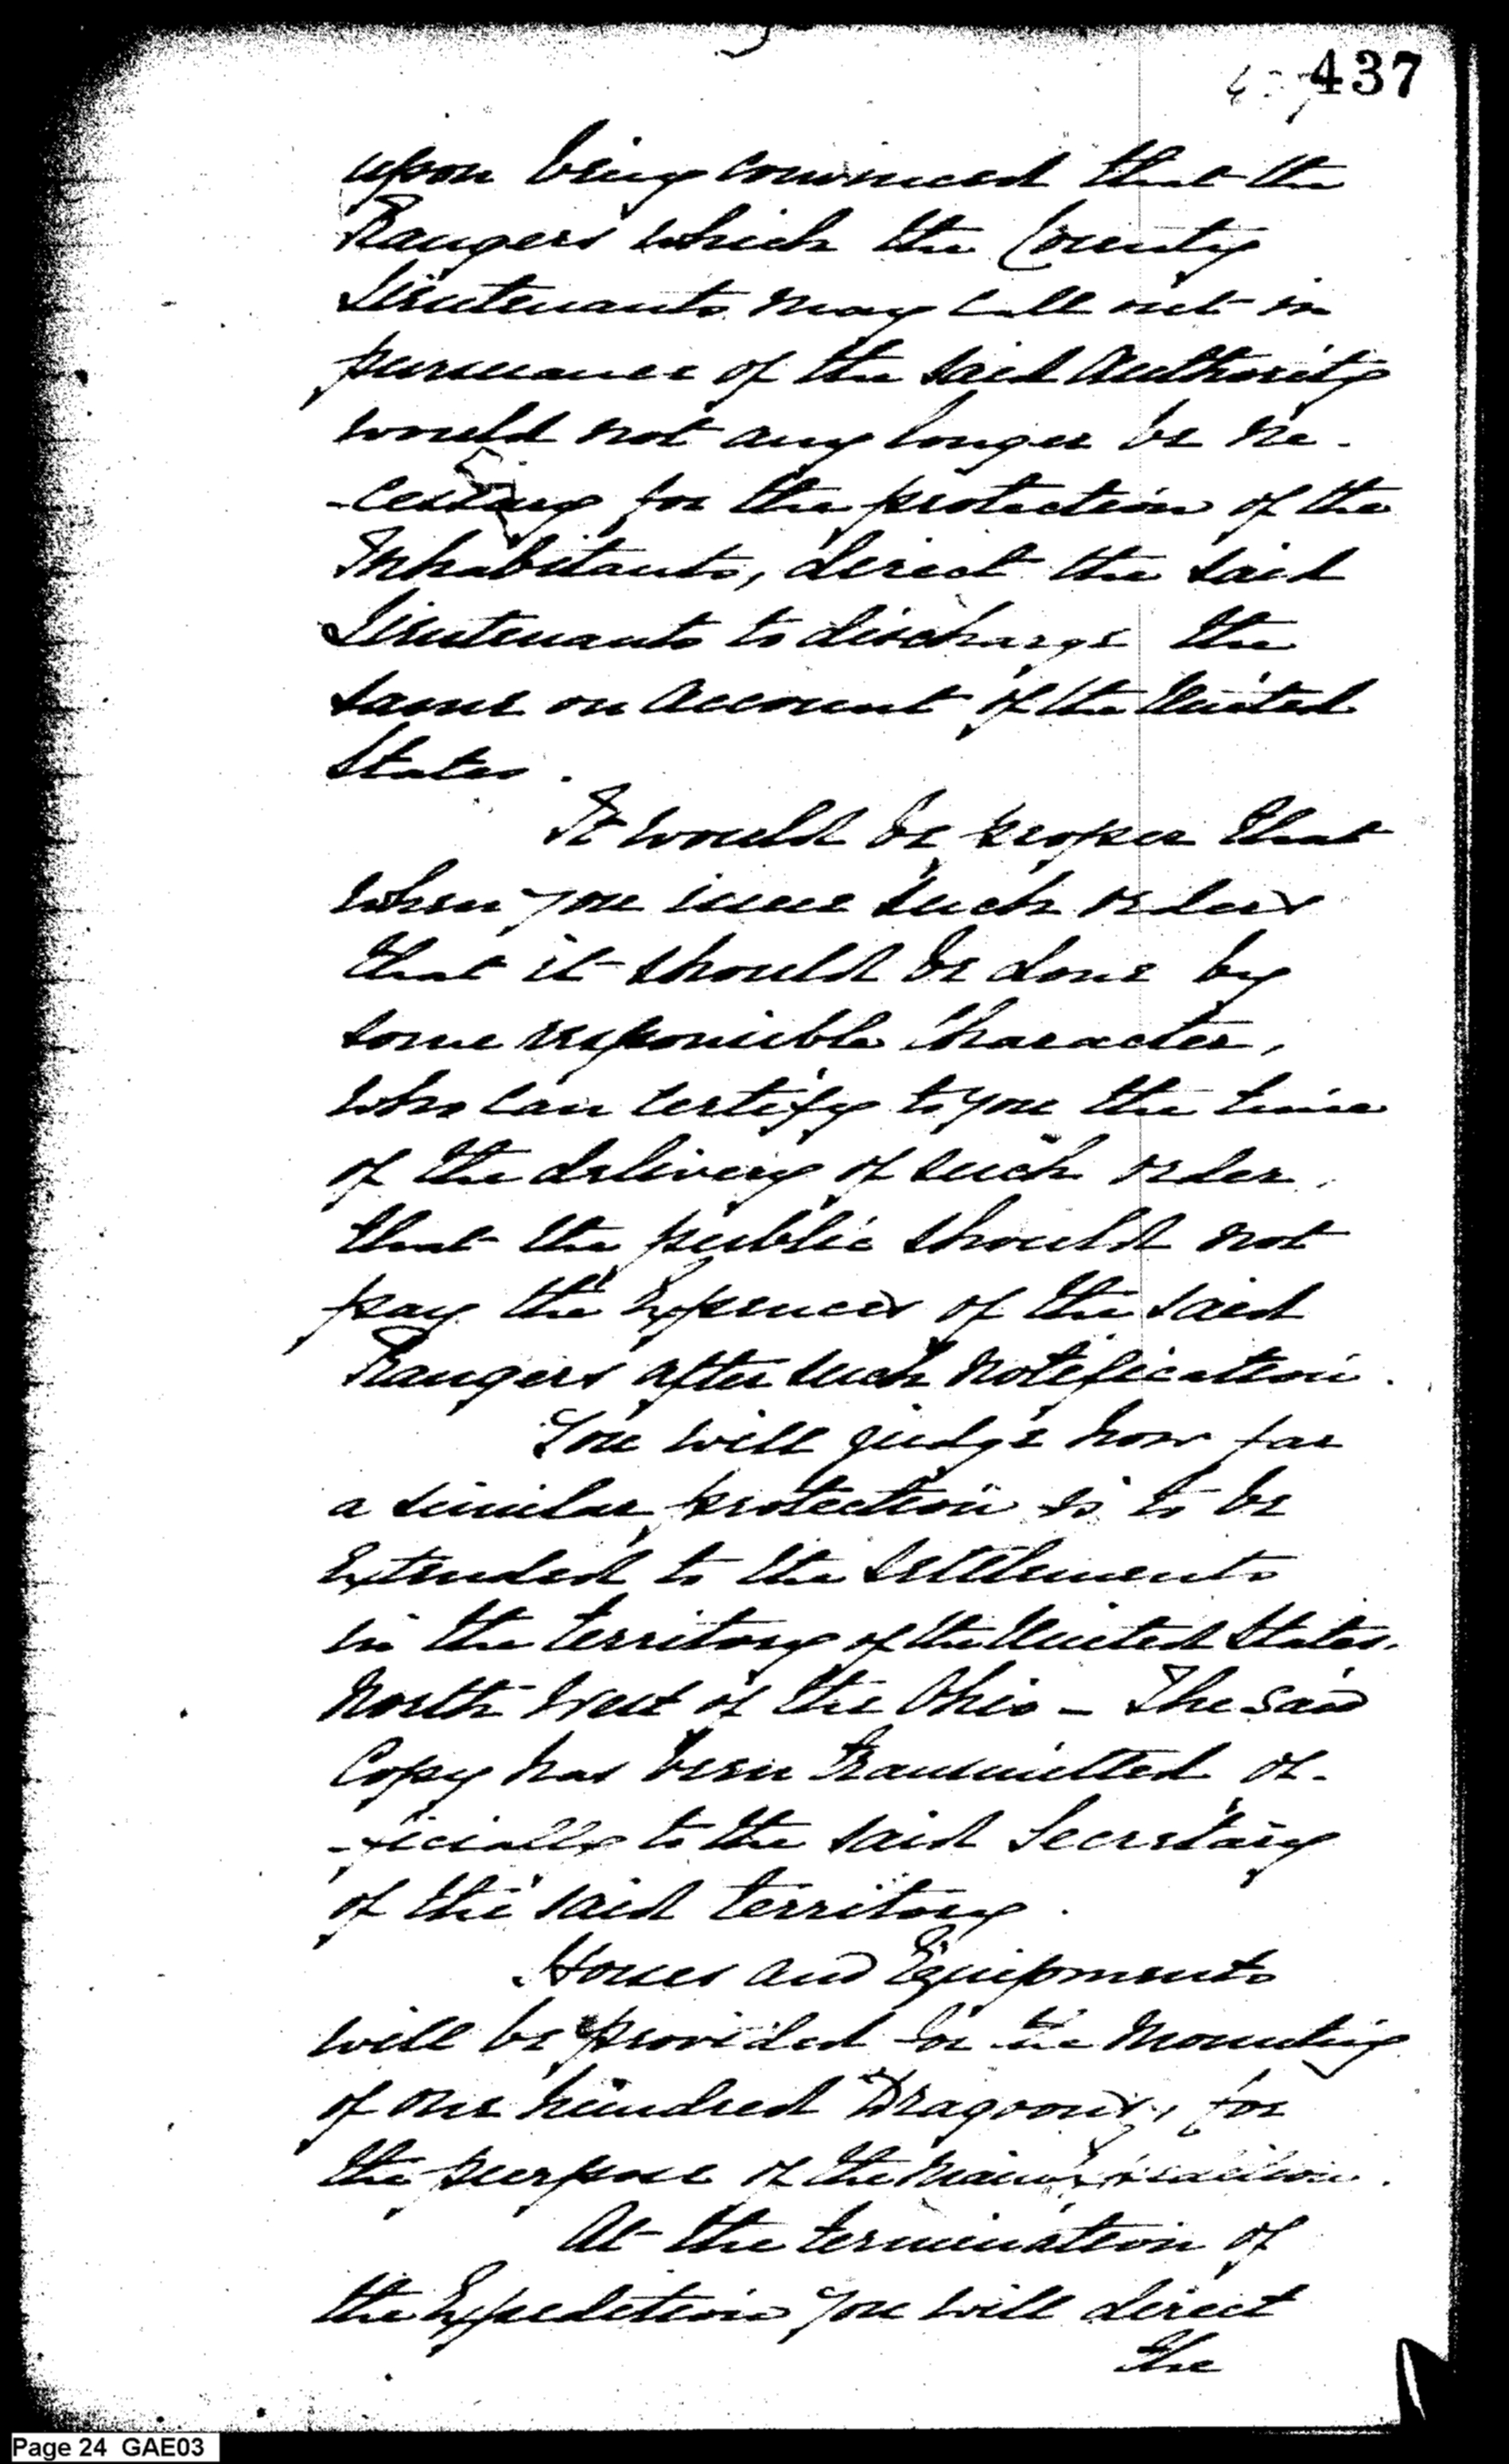 437
upon being convinced that the
Rangers which the County
Lieutenants may call out in
pursuance of the said Authority
would not any longer be ne-
-cessary for the protection of the
Inhabitants, direct the said
Lieutenants to discharge the
same on account of the United
States.
It would be proper that
when you issue such orders
that it should be done by
some responsible Character,
who can certify to you the time
of the delivery of such order,
that the public should not
pay the Expences of the said
Rangers after such notification.
You will judge how far
a similar protection is to be
Extended to the Settlements
in the territory of the United States.
North West of the Ohio - The said
Copy has been transmitted of-
-ficially to the said Secretary
of the said territory.
Horses and Equipments
will be provided for the mounting
of one hundred Dragoons, for
the purpose of the main
At the termination of
the Expedition you will direct
the
Page 24 GAE03